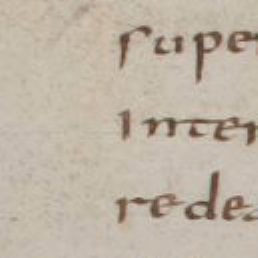 super
Inter
redea